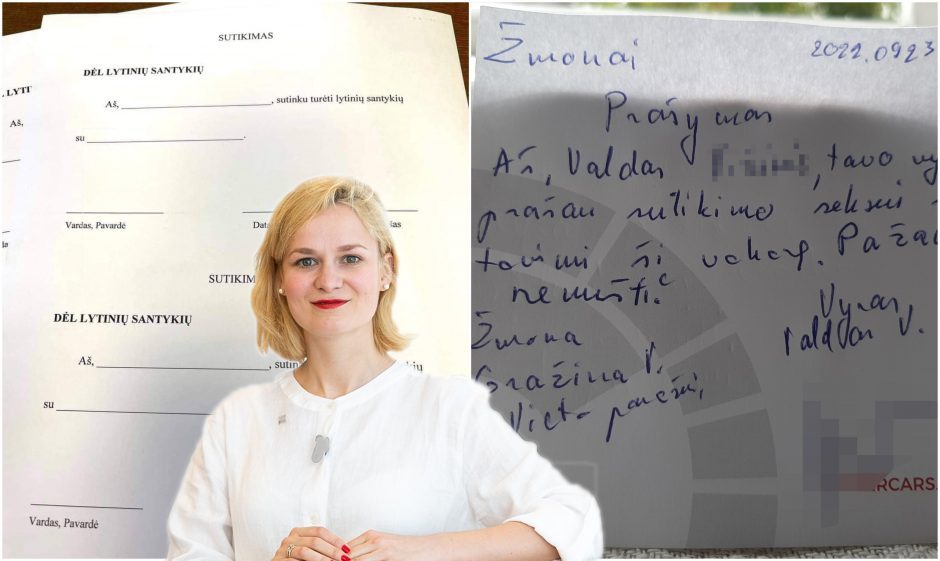 SUTIKIMAS
DĖL LYTINIŲ SANTYKIŲ
Aš, , sutinku turėti lytinių santykių
su .
Vardas, Pavardė
Dat
šias
SUTIK
DĖL LYTINIŲ SANTYKIŲ
Aš, , sutin kių
su
Vardas, Pavardė
LYTI
Aš,
su
Va
Žmonai 2022.0923
Prašymas
Aš, Valdas , tavo vy
prašau sutikimo seksui
tavimi šį vakarą. Paža
nemušti.
Žmona Vyras,
Gražina V. Valdas V.
Vieta parašui,
RCARS.